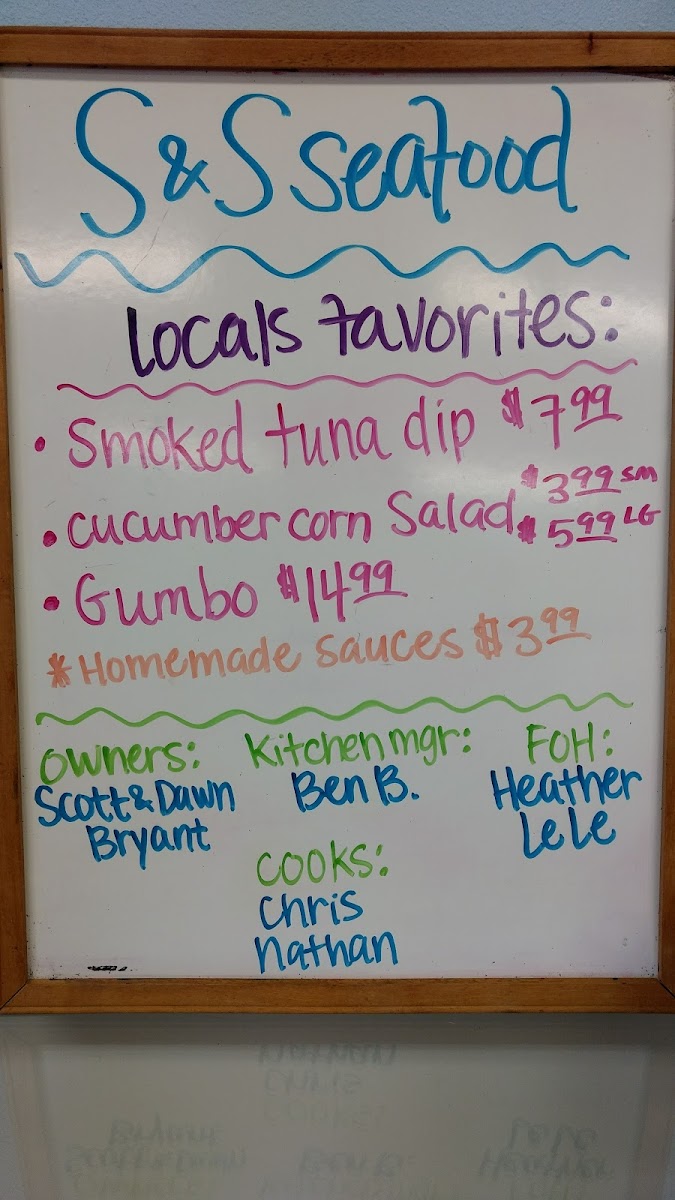 S & S seafood
Locals favorites:
• Smoked tuna dip $7.99
• cucumber corn Salad $3.99 sm
$5.99 LG
• Gumbo $14.99
* Homemade sauces $3.99
owners: Kitchen mgr: FOH:
Scott & Dawn Ben B. Heather
Bryant LeLe
cooks:
Chris
nathan